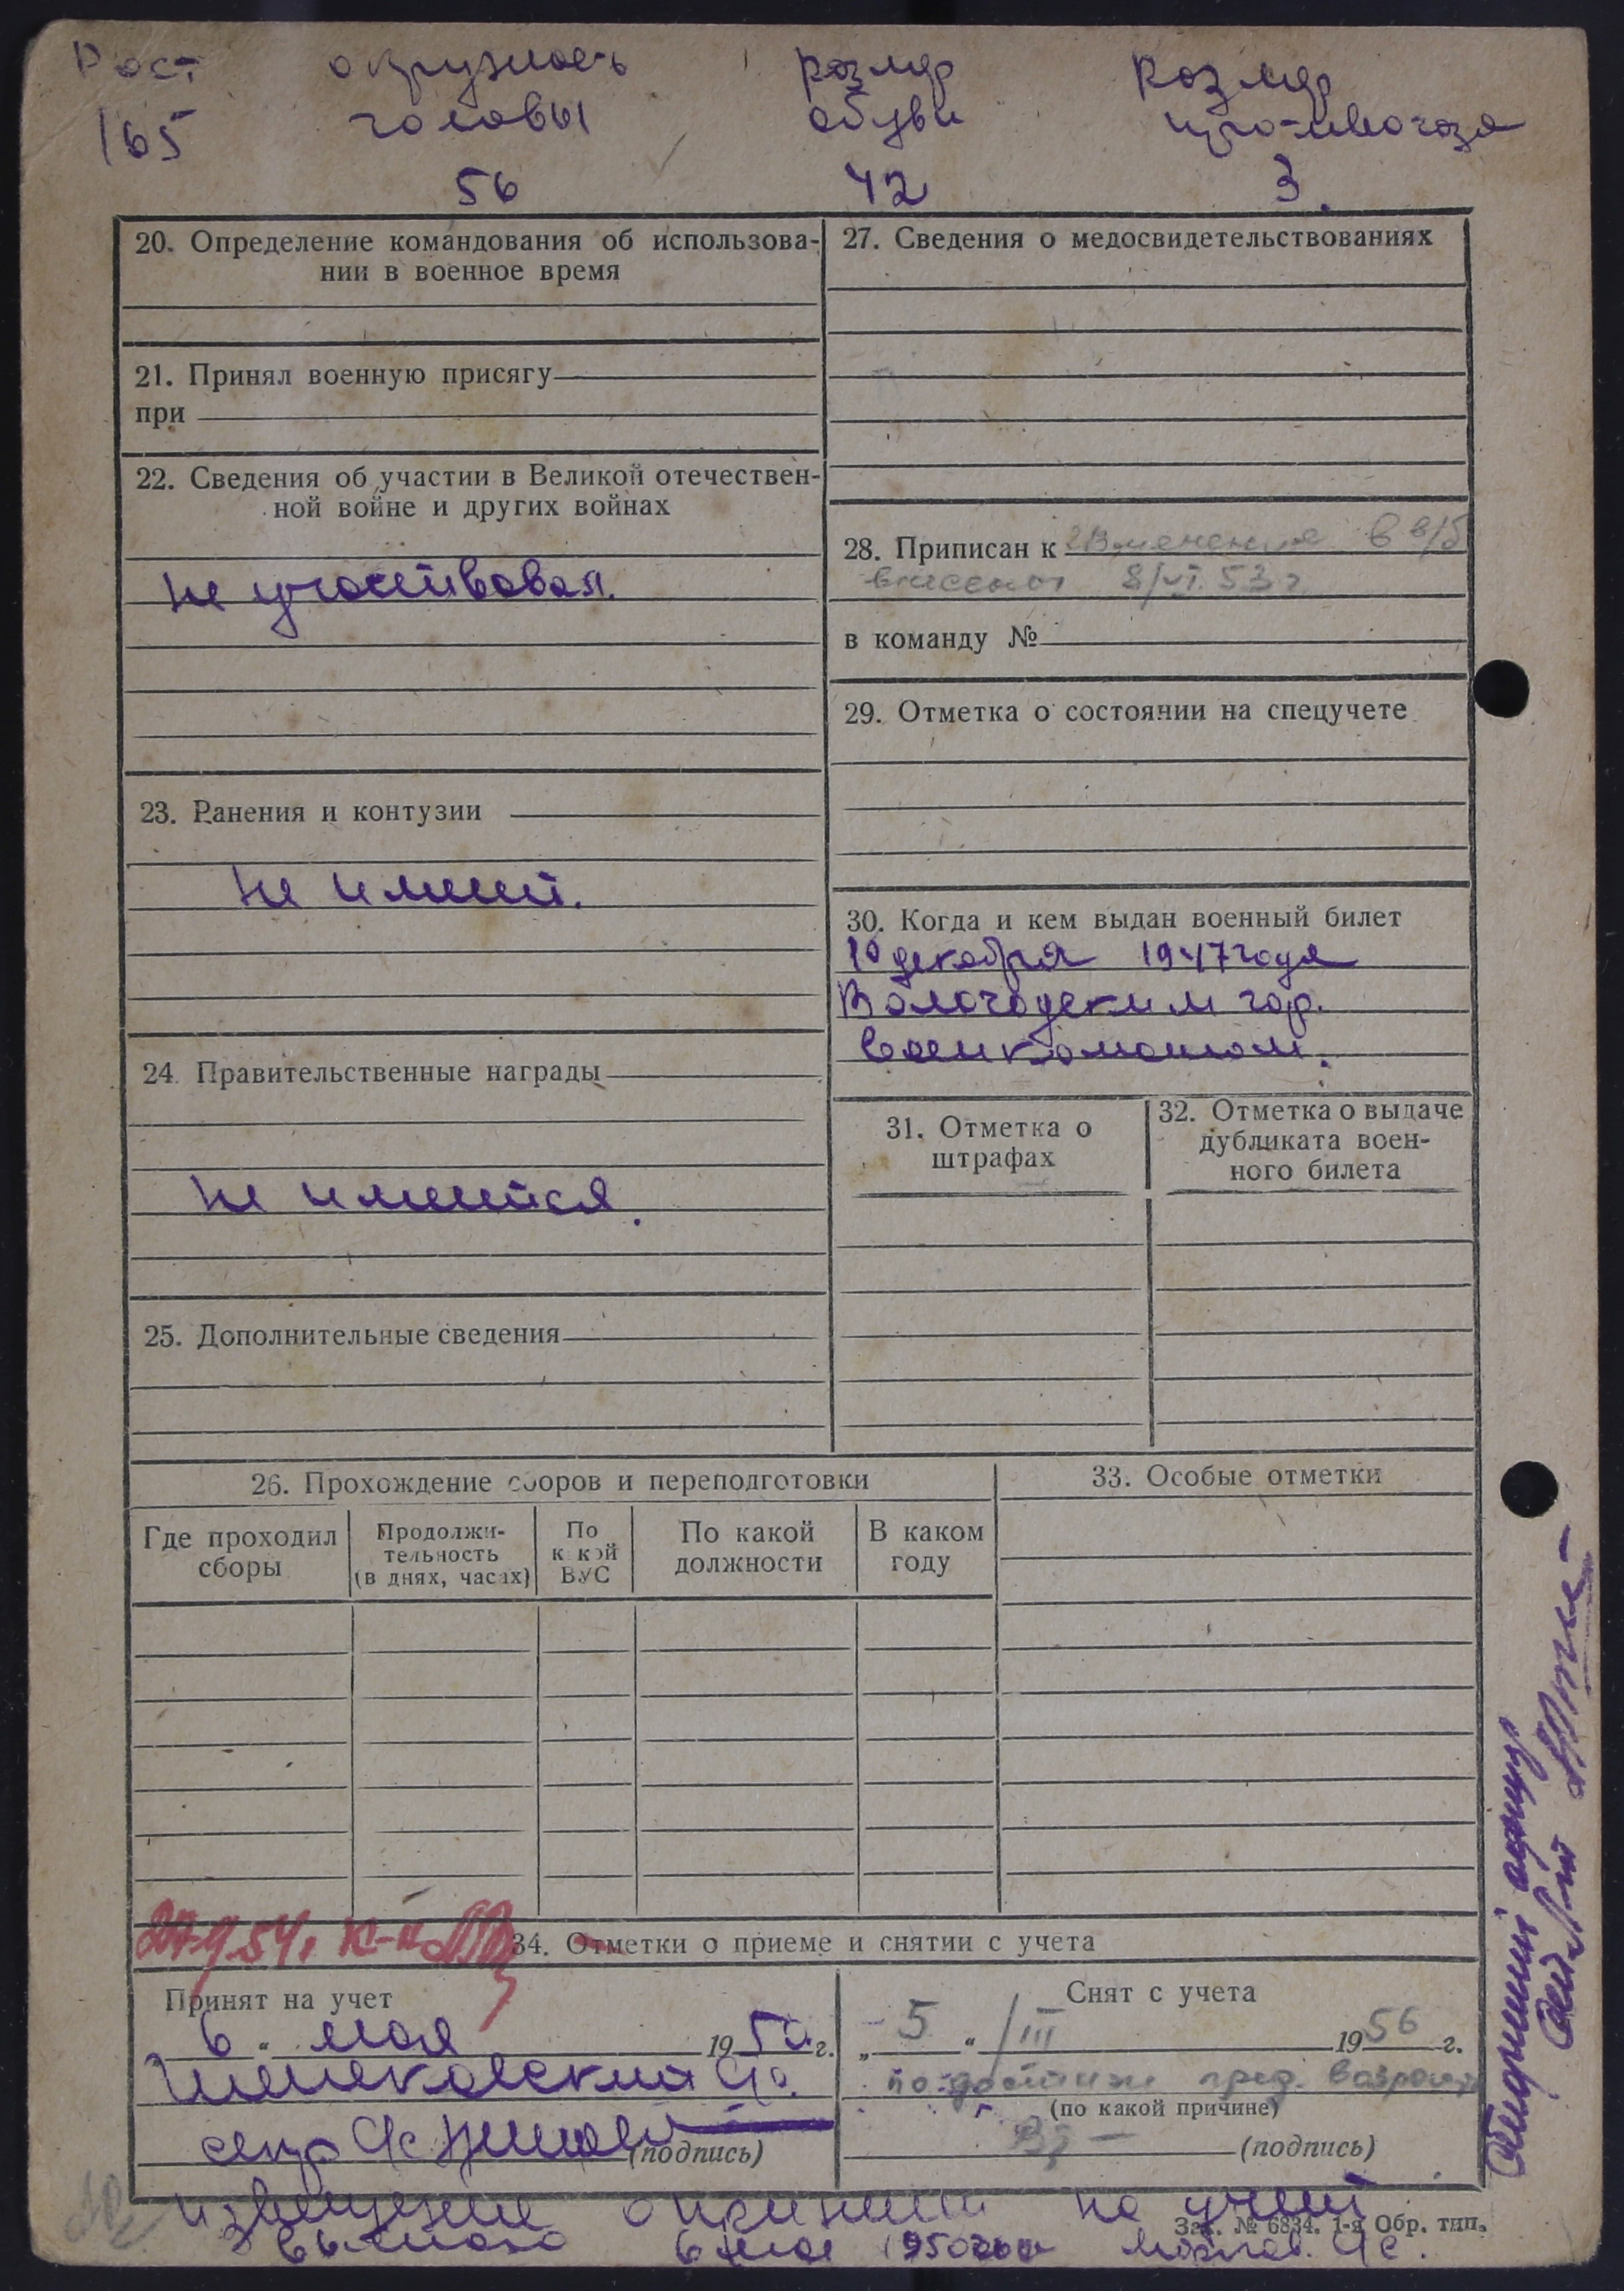 Рост окружность размер размер
165 головы обуви противогаза
56 42 3.
20. Определение командования об использова-
нии в военное время
21. Принял военную присягу
при
22. Сведения об участии в Великой отечествен-
ной войне и других войнах
не участвовал.
23. Ранения и контузии
не имеет.
24. Правительственные награды
не имеется.
25. Дополнительные сведения
27. Сведения о медосвидетельствованиях
28. Приписан к Изменения в в/б
внесены 8/VI. 53 г
в команду №
29. Отметка о состоянии на спецучете
30. Когда и кем выдан военный билет
10 декабря 1947 года
Вологодским гор.
военкоматом.
31. Отметка о
штрафах
32. Отметка о выдаче
дубликата воен-
ного билета
26. Прохождение сборов и переподготовки
Где проходил
сборы
Продолжи-
тельность
(в днях, часах)
По
какой
ВУС
По какой
должности
В каком
году
33. Особые отметки
34. Отметки о приеме и снятии с учета
Принят на учет
6 " мая 1950 г.
(подпись)
Снят с учета
" 5 " /III 1956 г.
по достиж пред. возраста
(по какой причине)
(подпись)
извещение о принятии на учет
выслано 6 мая 1950 года
Зак. № 6834. 1-я Обр. тип.